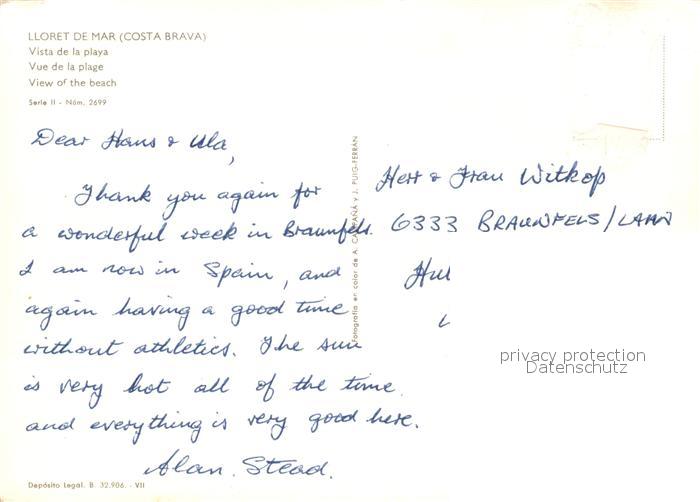 LLORET DE MAR (COSTA BRAVA)
Vista de la playa
Vue de la plage
View of the beach
Serie II - Núm. 2699
Dear Hans & Ula,
Thank you again for
a wonderful week in Braunfels.
I am now in Spain, and
again having a good time
without athletics. The sun
is very hot all of the time
and everything is very good here.
Alan Stead.
Depósito Legal. B. 32.906. - VII
Fotografía en color de A. CAMPAÑÁ y J. PUIG-FERRÁN
Herr & Frau Witkop
6333 BRAUNFELS/LAHN
privacy protection
Datenschutz